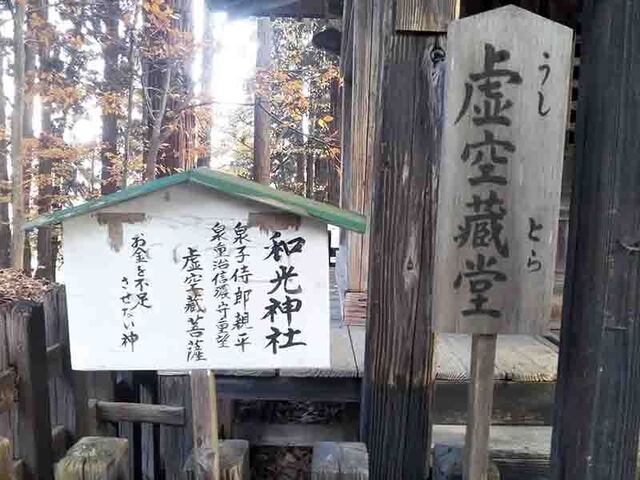 うし　とら
虚空蔵堂
和光神社
泉子侍郎親平
泉重治信濃守重望
虚空蔵菩薩
お金を不足
させない神